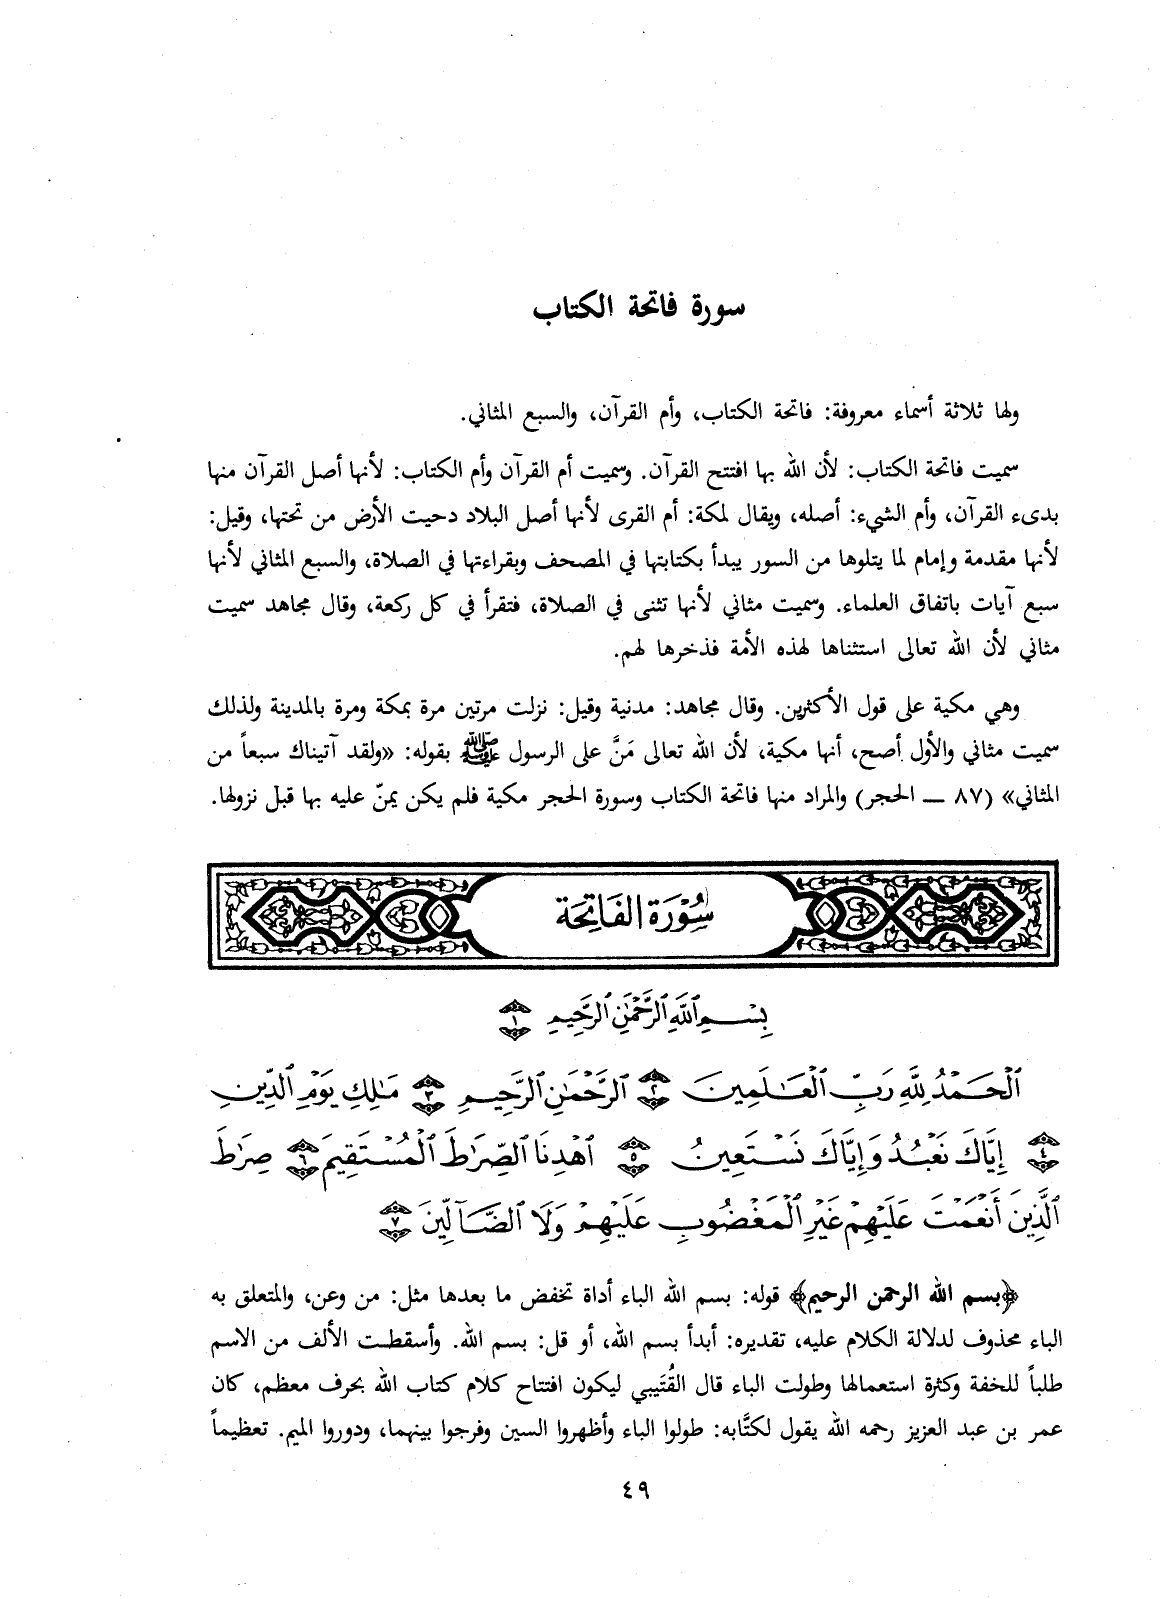 سورة فاتحة الكتاب
ولها ثلاثة أسماء معروفة: فاتحة الكتاب، وأم القرآن، والسبع المثاني.
سميت فاتحة الكتاب: لأن الله بها افتتح القرآن. وسميت أم القرآن وأم الكتاب: لأنها أصل القرآن منها
بدىء القرآن، وأم الشيء: أصله، ويقال لمكة: أم القرى لأنها أصل البلاد دحيت الأرض من تحتها، وقيل:
لأنها مقدمة وإمام لما يتلوها من السور يبدأ بكتابتها في المصحف وبقراءتها في الصلاة، والسبع المثاني لأنها
سبع آيات باتفاق العلماء. وسميت مثاني لأنها تثنى في الصلاة، فتقرأ في كل ركعة، وقال مجاهد سميت
مثاني لأن الله تعالى استثناها لهذه الأمة فذخرها لهم.
وهي مكية على قول الأكثرين. وقال مجاهد: مدنية وقيل: نزلت مرتين مرة بمكة ومرة بالمدينة ولذلك
سميت مثاني والأول أصح، أنها مكية، لأن الله تعالى مَنَّ على الرسول ﷺ بقوله: «ولقد آتيناك سبعاً من
المثاني» (٨٧ ــ الحجر) والمراد منها فاتحة الكتاب وسورة الحجر مكية فلم يكن يمنّ عليه بها قبل نزولها.
سُورَة الفَاتِحَة
بِسْمِ ٱللَّهِ ٱلرَّحْمَٰنِ ٱلرَّحِيمِ ١
ٱلْحَمْدُ لِلَّهِ رَبِّ ٱلْعَٰلَمِينَ ٢ ٱلرَّحْمَٰنِ ٱلرَّحِيمِ ٣ مَٰلِكِ يَوْمِ ٱلدِّينِ
٤ إِيَّاكَ نَعْبُدُ وَإِيَّاكَ نَسْتَعِينُ ٥ ٱهْدِنَا ٱلصِّرَٰطَ ٱلْمُسْتَقِيمَ ٦ صِرَٰطَ
ٱلَّذِينَ أَنْعَمْتَ عَلَيْهِمْ غَيْرِ ٱلْمَغْضُوبِ عَلَيْهِمْ وَلَا ٱلضَّآلِّينَ ٧
﴿بسم الله الرحمن الرحيم﴾ قوله: بسم الله الباء أداة تخفض ما بعدها مثل: من وعن، والمتعلق به
الباء محذوف لدلالة الكلام عليه، تقديره: أبدأ بسم الله، أو قل: بسم الله. وأسقطت الألف من الاسم
طلباً للخفة وكثرة استعمالها وطولت الباء قال القُتَيبي ليكون افتتاح كلام كتاب الله بحرف معظم، كان
عمر بن عبد العزيز رحمه الله يقول لكتَّابه: طولوا الباء وأظهروا السين وفرجوا بينهما، ودوروا الميم. تعظيماً
٤٩